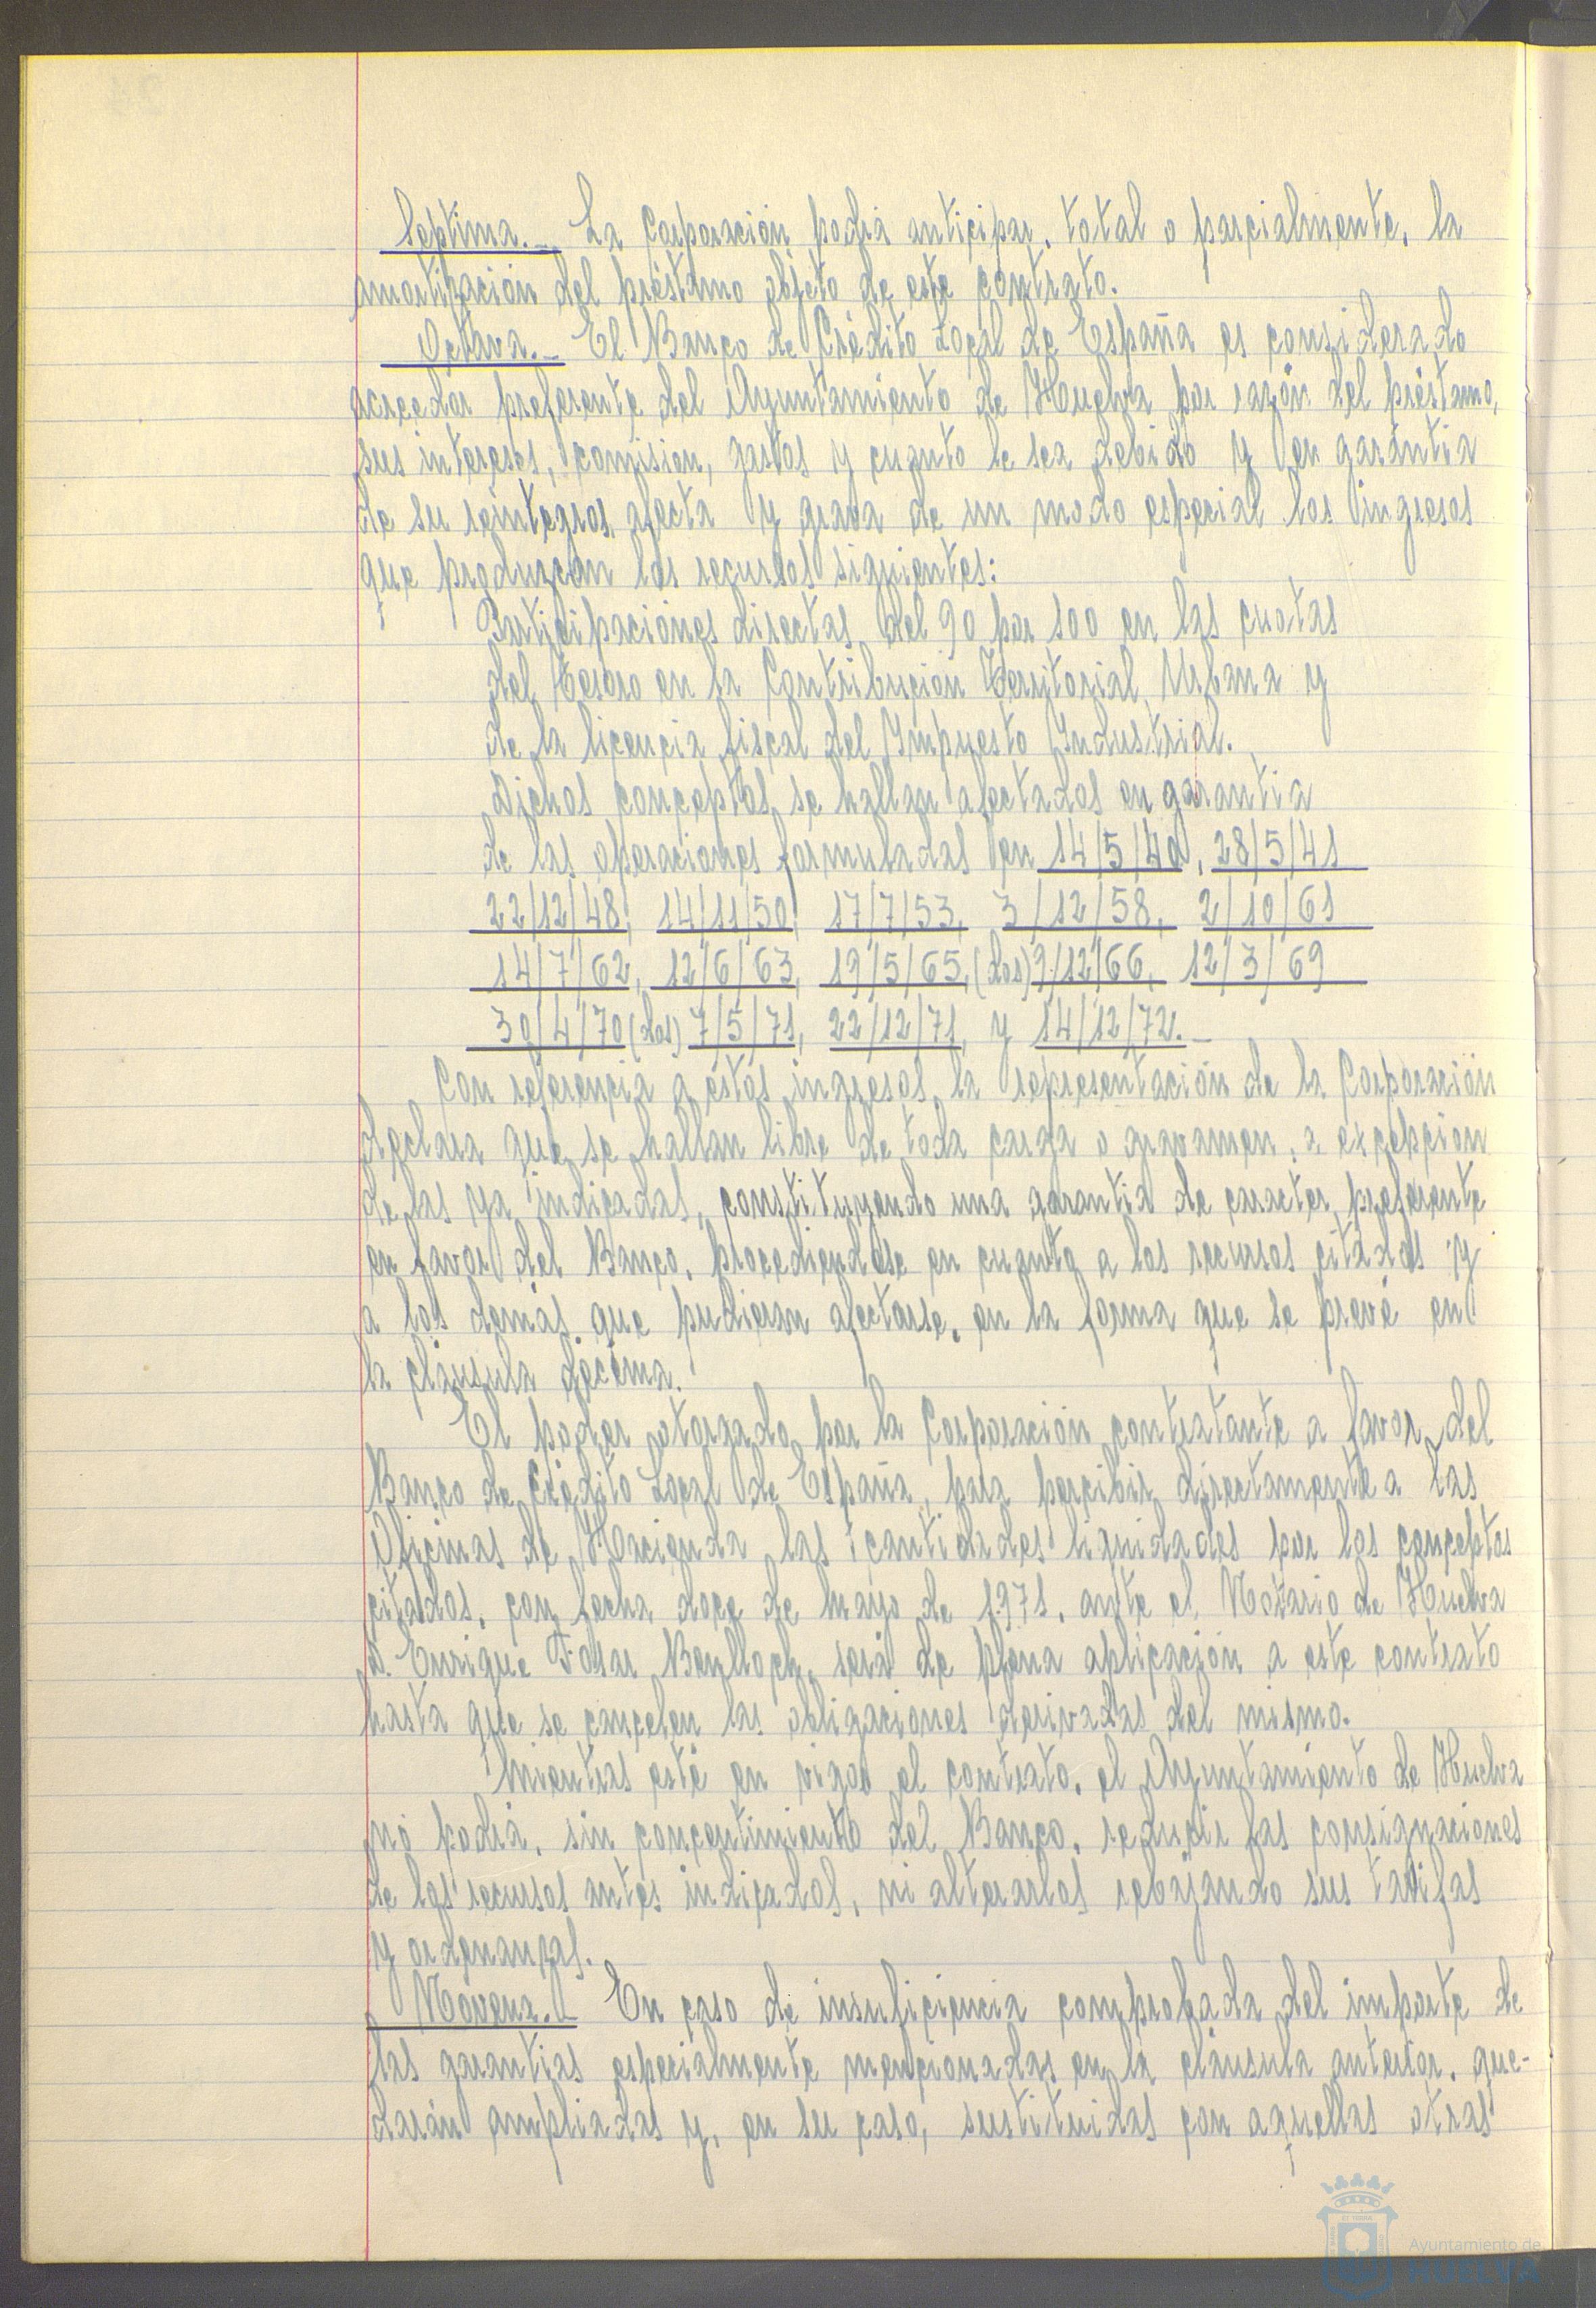 Septima.- La Corporación podrá anticipar, total o parcialmente, la
amortización del préstamo objeto de este contrato.
Octava.- El Banco de Crédito Local de España es considerado
acreedor preferente del Ayuntamiento de Huelva por razón del préstamo,
sus intereses, comision, gastos y cuanto le sea debido y en garantia
de su reintegros, afecta y grava de un modo especial los ingresos
que produzcan los recursos siguientes:
Participaciones directas del 90 por 100 en las cuotas
del Tesoro en la Contribución Territorial Urbana y
de la licencia fiscal del Impuesto Industrial.
Dichos conceptos se hallan afectados en garantia
de las operaciones formuladas en 14/5/40, 28/5/41
22/12/48, 14/11/50, 17/7/53, 3/12/58, 2/10/61
14/7/62, 12/6/63, 19/5/65, (dos) 9/12/66, 12/3/69
30/4/70 (dos) 7/5/71, 22/12/71, y 14/12/72.-
Con referencia a éstos ingresos, la representación de la Corporación
declara que se hallan libre de toda carga o gravamen, a excepción
de las ya indicadas, constituyendo una garantia de caracter preferente
en favor del Banco, procediendose en cuanto a los recursos citados y
a los demás que pudieran afectarse, en la forma que se prevé en
la cláusula decima.
El poder otorgado por la Corporación contratante a favor del
Banco de Crédito Local de España, para percibir directamente a las
Oficinas de Hacienda las cantidades liquidades por los conceptos
citados, con fecha doce de Mayo de 1971, ante el Notario de Huelva
D. Enrique Fosar Benlloch, será de plena aplicación a este contrato
hasta que se cancelen las obligaciones derivadas del mismo.
Mientras esté en vigor el contrato, el Ayuntamiento de Huelva
no podrá, sin concentimiento del Banco, reducir las consignaciones
de los recursos antes indicados, ni alterarlos rebajando sus tarifas
y ordenanzas.
Novena.- En caso de insuficiencia comprobada del importe de
las garantias especialmente mencionadas en la cláusula anterior, que-
darán ampliadas y, en su caso, sustituidas con aquellas otras
Ayuntamiento de
HUELVA